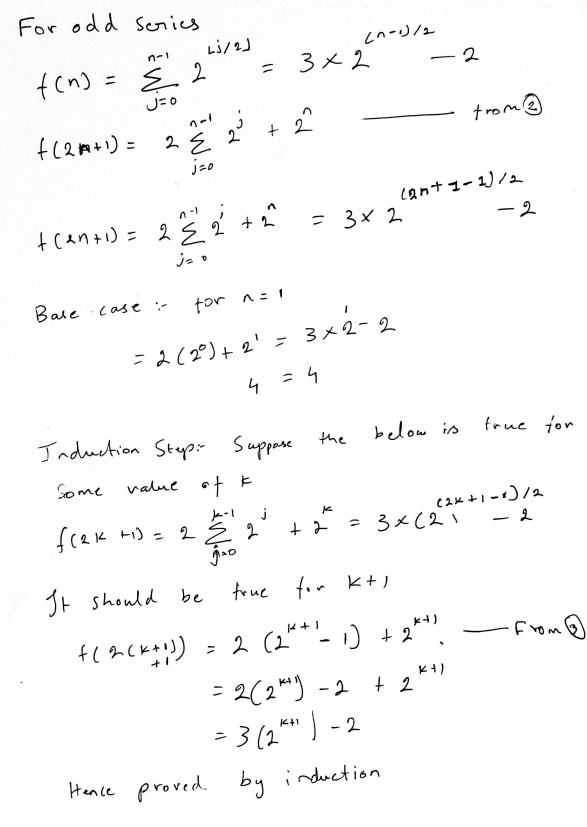 For odd series
f(n) = Σ_{j=0}^{n-1} 2^{⌊j/2⌋} = 3 × 2^{(n-1)/2} - 2
f(2n+1) = 2 Σ_{j=0}^{n-1} 2^j + 2^n ——— from ②
f(2n+1) = 2 Σ_{j=0}^{n-1} 2^j + 2^n = 3 × 2^{(2n+1-1)/2} - 2
Base case :- for n = 1
= 2(2^0) + 2^1 = 3 × 2^1 - 2
4 = 4
Induction Step:- Suppose the below is true for
Some value of k
f(2k+1) = 2 Σ_{j=0}^{k-1} 2^j + 2^k = 3 × (2^{(2k+1-1)/2} - 2
It should be true for k+1
f(2(k+1)+1) = 2(2^{k+1} - 1) + 2^{k+1}. — From ②
= 2(2^{k+1}) - 2 + 2^{k+1}
= 3(2^{k+1}) - 2
Hence proved. by induction